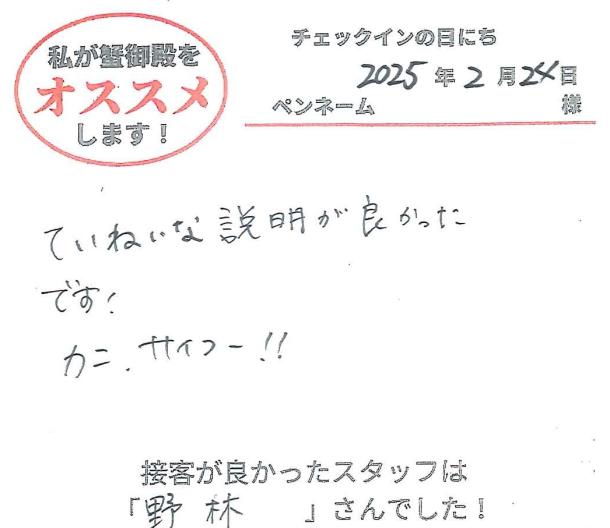 私が蟹御殿を
オススメ
します！
チェックインの日にち
2025年2月24日
ペンネーム 様
ていねいな説明が良かった
です！
カニ、サイコー！！
接客が良かったスタッフは
「野林 」さんでした！